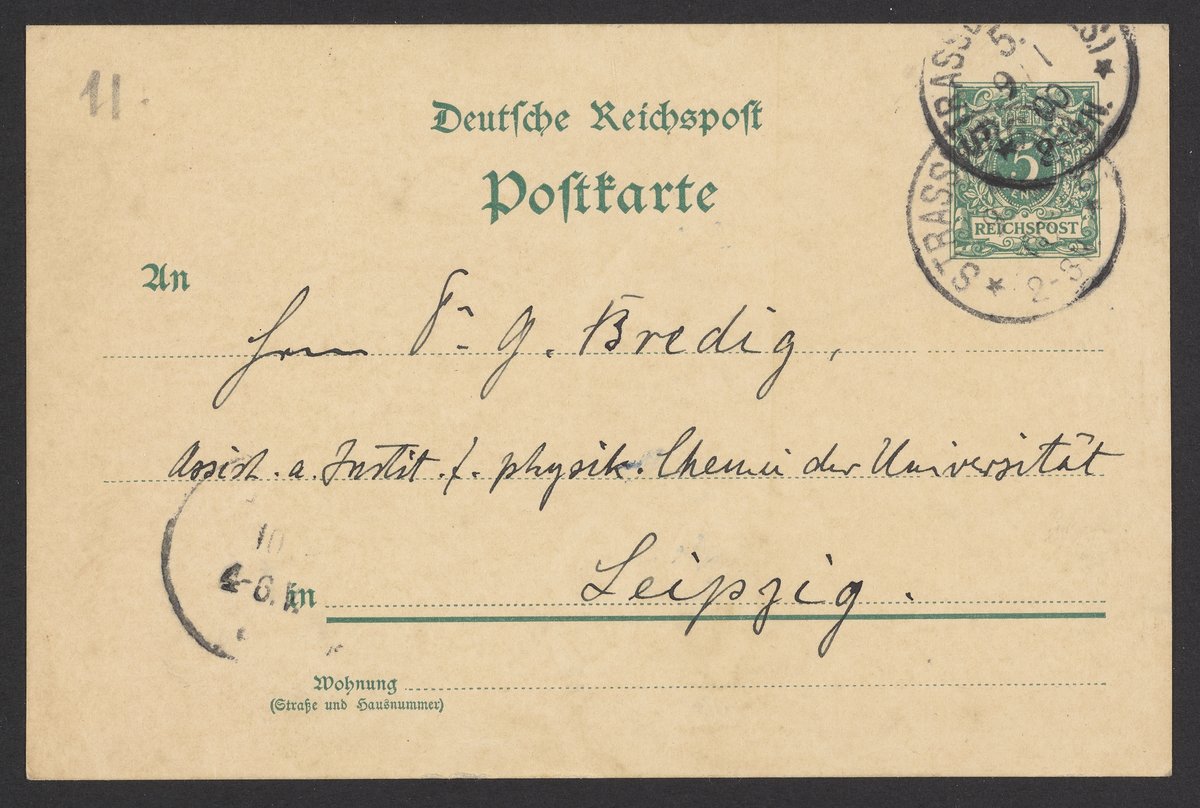 11.
Deutsche Reichspost
Postkarte
STRASSB
S.)
5.
9 1
00
2-3 N.
5
REICHSPOST
STRASS
2-3
An
Herrn Dr G. Bredig,
Assist. a. Instit. f. physik. Chemie der Universität
10
4-6. N
in Leipzig.
Wohnung
(Straße und Hausnummer)